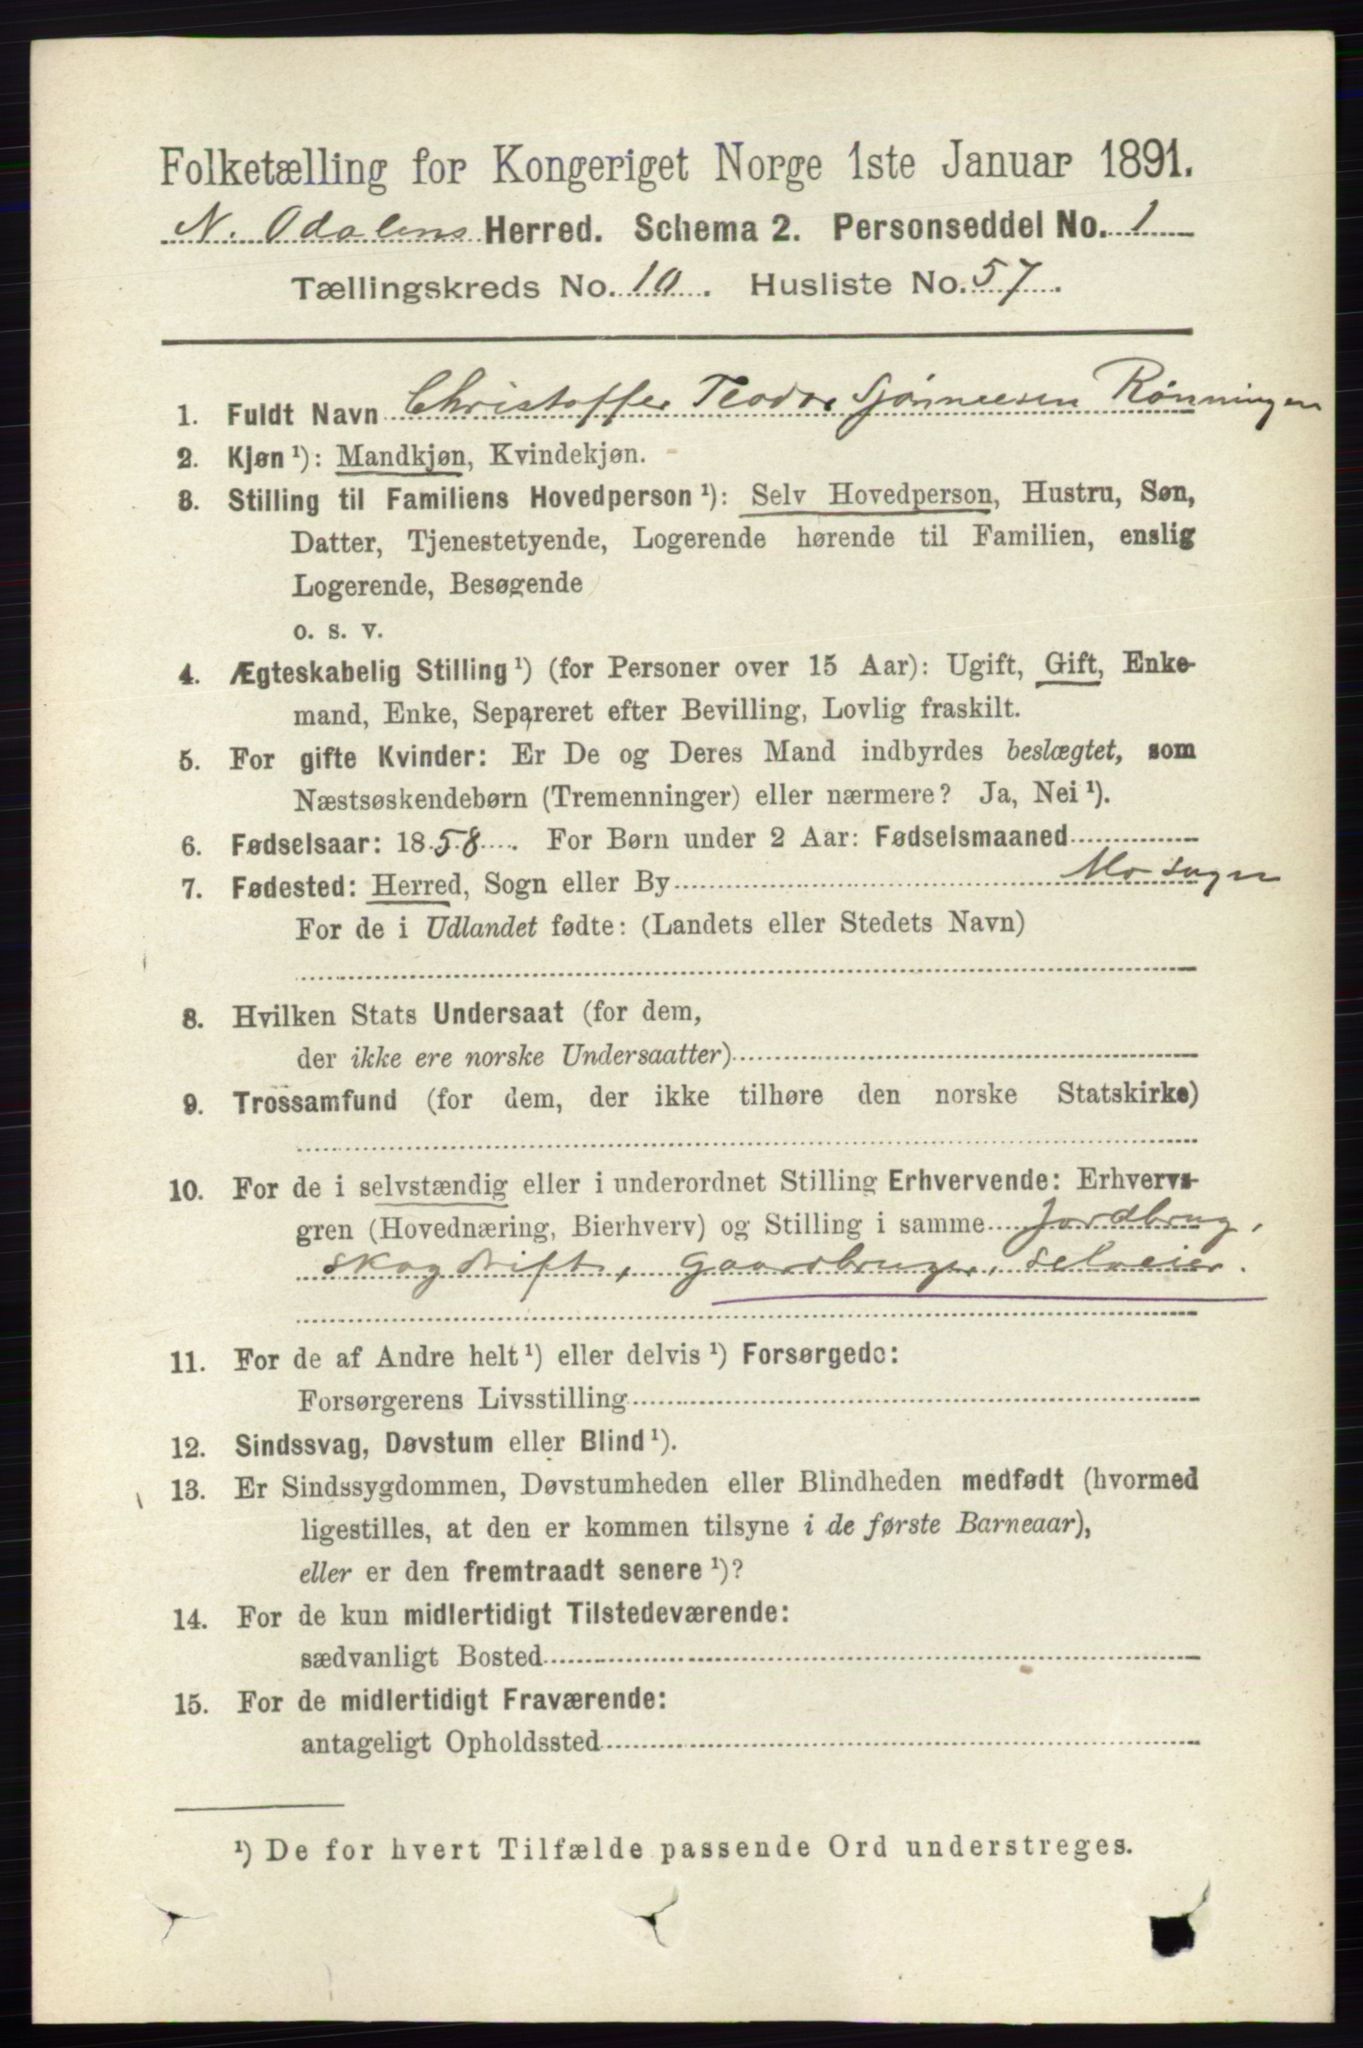 Folketælling for Kongeriget Norge 1ste Januar 1891.
N. Odalens Herred. Schema 2. Personseddel No. 1
Tællingskreds No. 10. Husliste No. 57.
1. Fuldt Navn Christoffer Teodor Rønningen
2. Kjøn ¹): Mandkjøn, Kvindekjøn.
3. Stilling til Familiens Hovedperson ¹): Selv Hovedperson, Hustru, Søn,
Datter, Tjenestetyende, Logerende hørende til Familien, enslig
Logerende, Besøgende
o. s. v.
4. Ægteskabelig Stilling ¹) (for Personer over 15 Aar): Ugift, Gift, Enke-
mand, Enke, Separeret efter Bevilling, Lovlig fraskilt.
5. For gifte Kvinder: Er De og Deres Mand indbyrdes beslægtet, som
Næstsøskendebørn (Tremenninger) eller nærmere? Ja, Nei ¹).
6. Fødselsaar: 1858. For Børn under 2 Aar: Fødselsmaaned
7. Fødested: Herred, Sogn eller By Mo sogn
For de i Udlandet fødte: (Landets eller Stedets Navn)
8. Hvilken Stats Undersaat (for dem,
der ikke ere norske Undersaatter)
9. Trossamfund (for dem, der ikke tilhøre den norske Statskirke)
10. For de i selvstændig eller i underordnet Stilling Erhvervende: Erhvervs-
gren (Hovednæring, Bierhverv) og Stilling i samme Jordbrug,
skogdrift, gaardbruger, selveier.
11. For de af Andre helt ¹) eller delvis ¹) Forsørgede:
Forsørgerens Livsstilling
12. Sindssvag, Døvstum eller Blind ¹).
13. Er Sindssygdommen, Døvstumheden eller Blindheden medfødt (hvormed
ligestilles, at den er kommen tilsyne i de første Barneaar),
eller er den fremtraadt senere ¹)?
14. For de kun midlertidigt Tilstedeværende:
sædvanligt Bosted
15. For de midlertidigt Fraværende:
antageligt Opholdssted
¹) De for hvert Tilfælde passende Ord understreges.